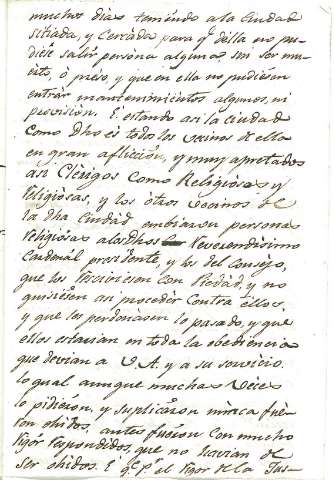 muchos dias teniendo a la ciudad
sitiada, y cercada para q̃ della no pu-
diese salir persona alguna, sin ser mu-
erto, ò preso, y que en ella no pudiesen
entrar mantenimientos algunos, ni
provision. E estando asi la ciudad
como dho es todos los vecinos de ella
en gran afliccion, y muy apretados
asi Clerigos como Religiosos y
religiosas, y los otros vecinos de
la dha ciudad embiaron personas
religiosas a los dhos Reverendisimo
Cardenal presidente, y los del Consejo,
que los reciviesen con Piedad, y no
quisiesen asi proceder contra ellos,
y que les perdonasen lo pasado, y que
ellos estarian en toda la obediencia
que devian a V. A. y a su servicio.
lo qual aunque muchas veces
lo pidieron, y suplicaron nunca fue-
ron ohidos, antes fueron con mucho
rigor respondidos, que no havian de
ser ohidos. E el rigor de la Jus-